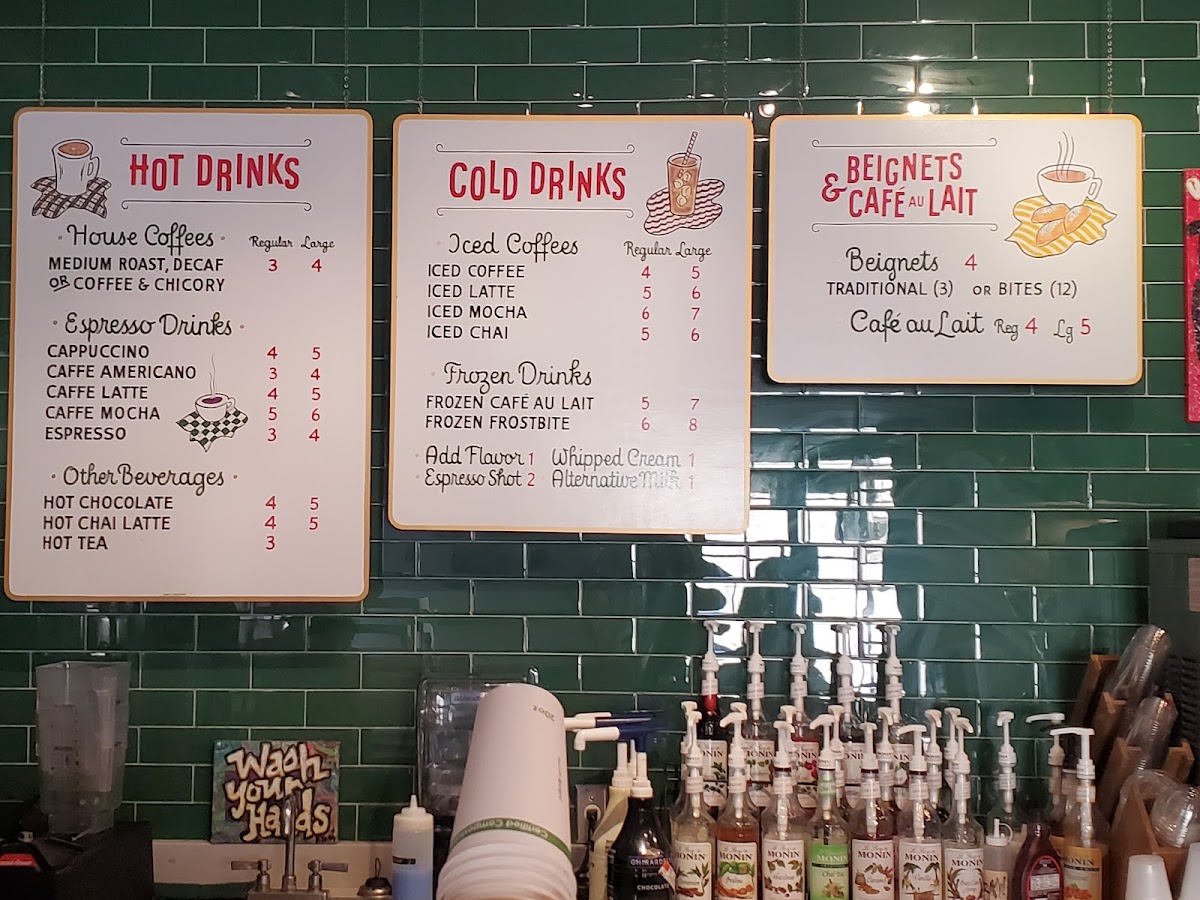 HOT DRINKS
House Coffees Regular Large
MEDIUM ROAST, DECAF 3 4
OR COFFEE & CHICORY
Espresso Drinks
CAPPUCCINO 4 5
CAFFE AMERICANO 3 4
CAFFE LATTE 4 5
CAFFE MOCHA 5 6
ESPRESSO 3 4
Other Beverages
HOT CHOCOLATE 4 5
HOT CHAI LATTE 4 5
HOT TEA 3
COLD DRINKS
Iced Coffees Regular Large
ICED COFFEE 4 5
ICED LATTE 5 6
ICED MOCHA 6 7
ICED CHAI 5 6
Frozen Drinks
FROZEN CAFÉ AU LAIT 5 7
FROZEN FROSTBITE 6 8
Add Flavor 1 Whipped Cream 1
Espresso Shot 2 Alternative Milk 1
BEIGNETS
& CAFÉ AU LAIT
Beignets 4
TRADITIONAL (3) OR BITES (12)
Café au Lait Reg 4 Lg 5
Wash
your
Hands
20oz
Certified
GHIRARDELLI
CHOCOLATE
MONIN
MONIN
MONIN
MONIN
MONIN
MONIN
MONIN
MONIN
MONIN
MONIN
MONIN